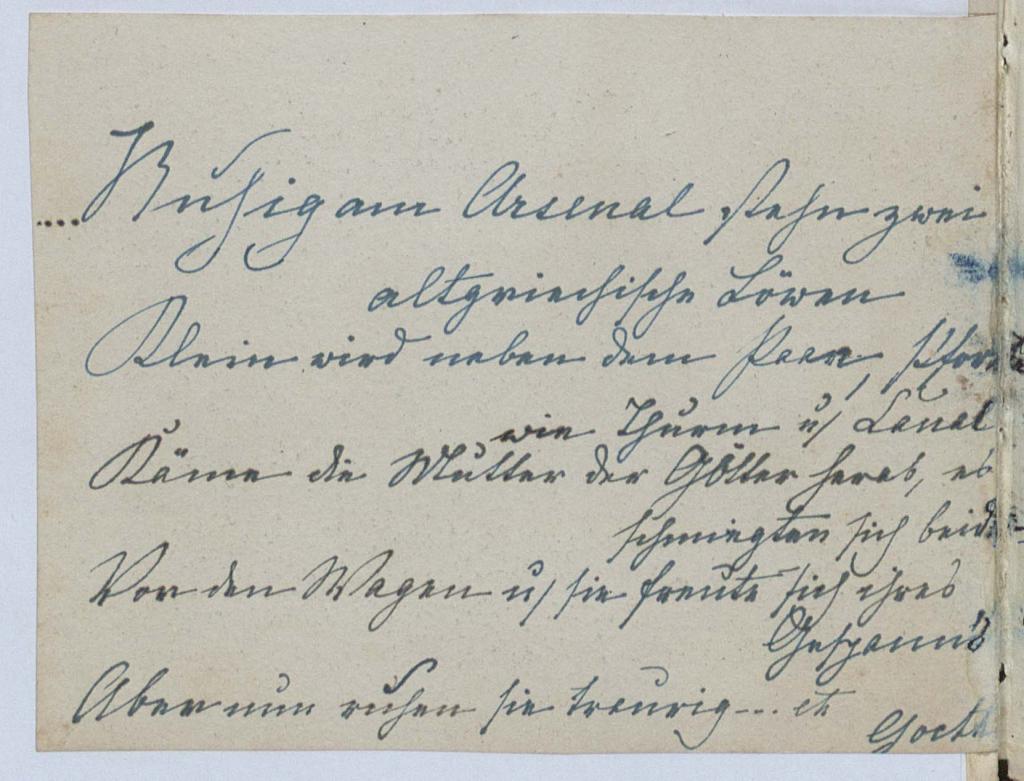 .... Ruhig am Arsenal stehn zwei
altgriechische Löwen
Klein wird neben dem Paar, Pfor
wie Thurm u/ Canal.
Käme die Mutter der Götter herab, es
schmiegten sich beid
Vor den Wagen u/ sie freute sich ihres
Gespann's
Aber nun ruhen sie traurig... etc
Goeth